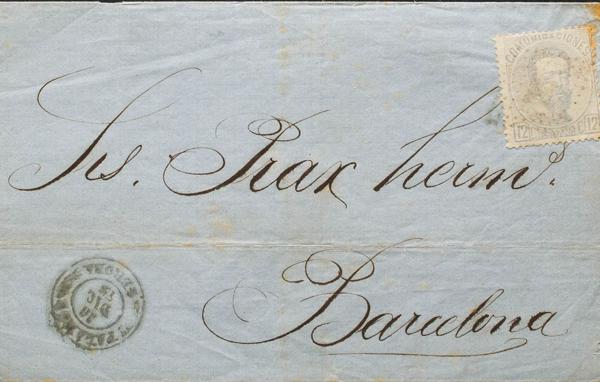 COMUNICACIONES
12 12
Srs. Prax herm.ˢ
Barcelona
DIC